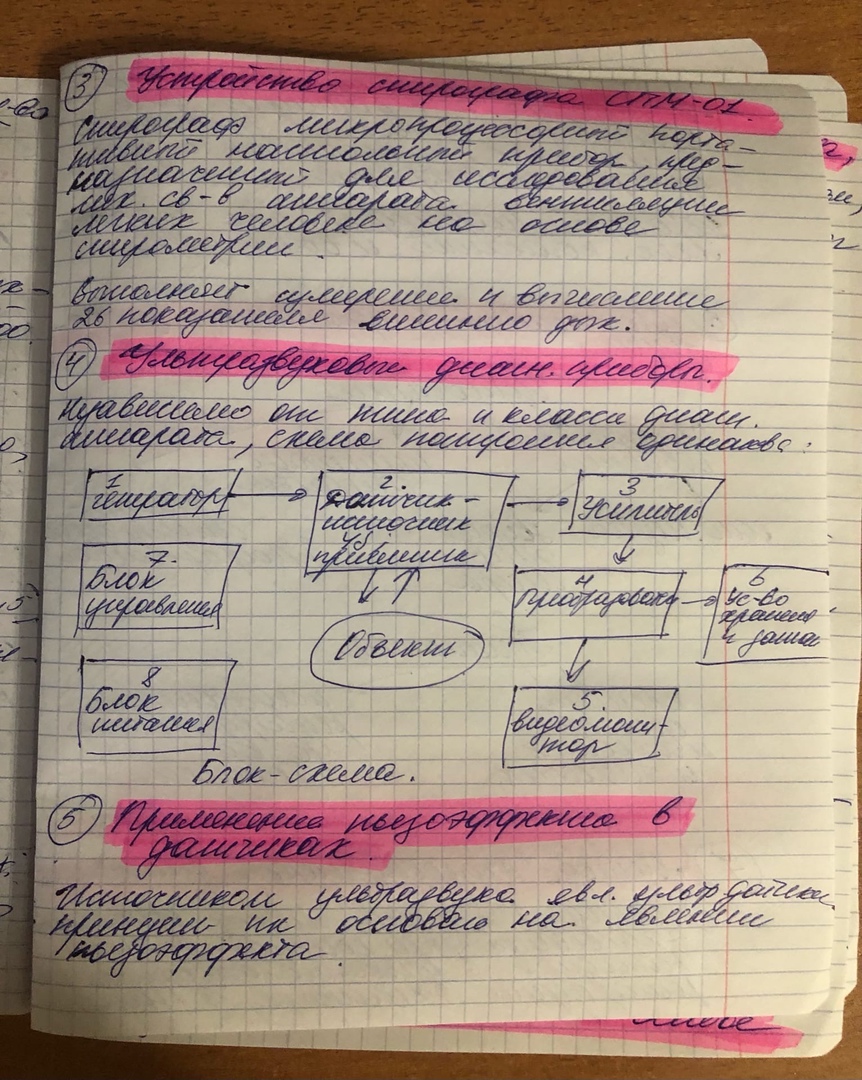 3 Устройство спирографа СПМ-01.
Спирограф микропроцессорный порта-
тивный настольный прибор, пред-
назначенный для исследования
мех. св-в аппарата вентиляции
легких человека на основе
спирометрии.
Выполняет измерение и вычисление
26 показателя внешнего дых.
4 Ультразвуковые диагн. приборы.
Независимо от типа и класса диагн.
аппарата, схема построения одинакова:
1
Генератор
2
Датчик-
источник
УЗ
приёмник
3
Усилитель
7
Блок
управления
4
Преобразоват
6
Ус-во
хранения
и запис
Объект
8
Блок
питания
5
видеомони-
тор
Блок-схема.
5 Применение пьезоэффекта в
датчиках.
Источником ультразвука явл. ультр датчики
принцип их основан на явлении
пьезоэффекта.